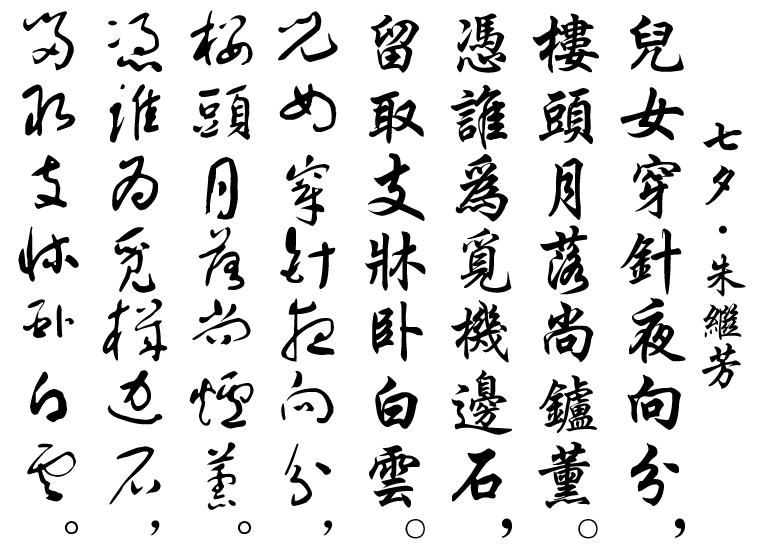 七夕·朱繼芳
兒女穿針夜向分，
樓頭月落尚鑪薰。
憑誰爲覓機邊石，
留取支牀卧白雲。
兒女穿針夜向分，
樓頭月落尚爐薰。
憑誰為覓機邊石，
留取支牀卧白雲。